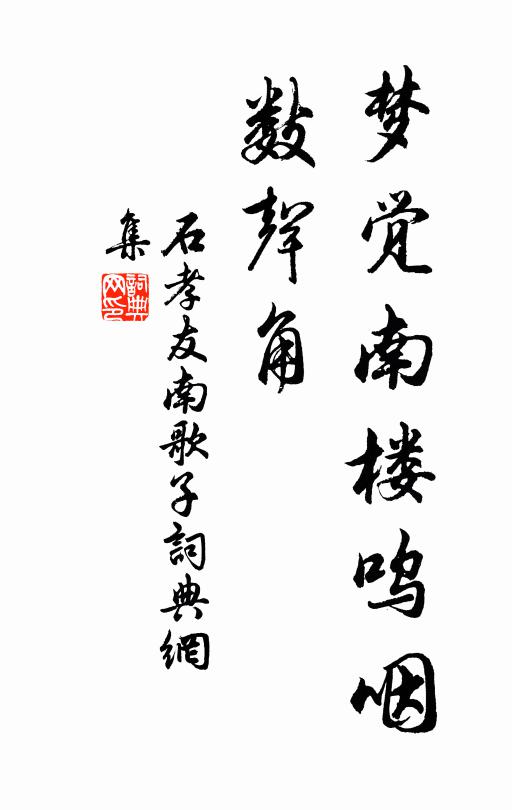 梦觉南楼呜咽
数聲角
石孝友南歌子詞典網
集
詞典
网印